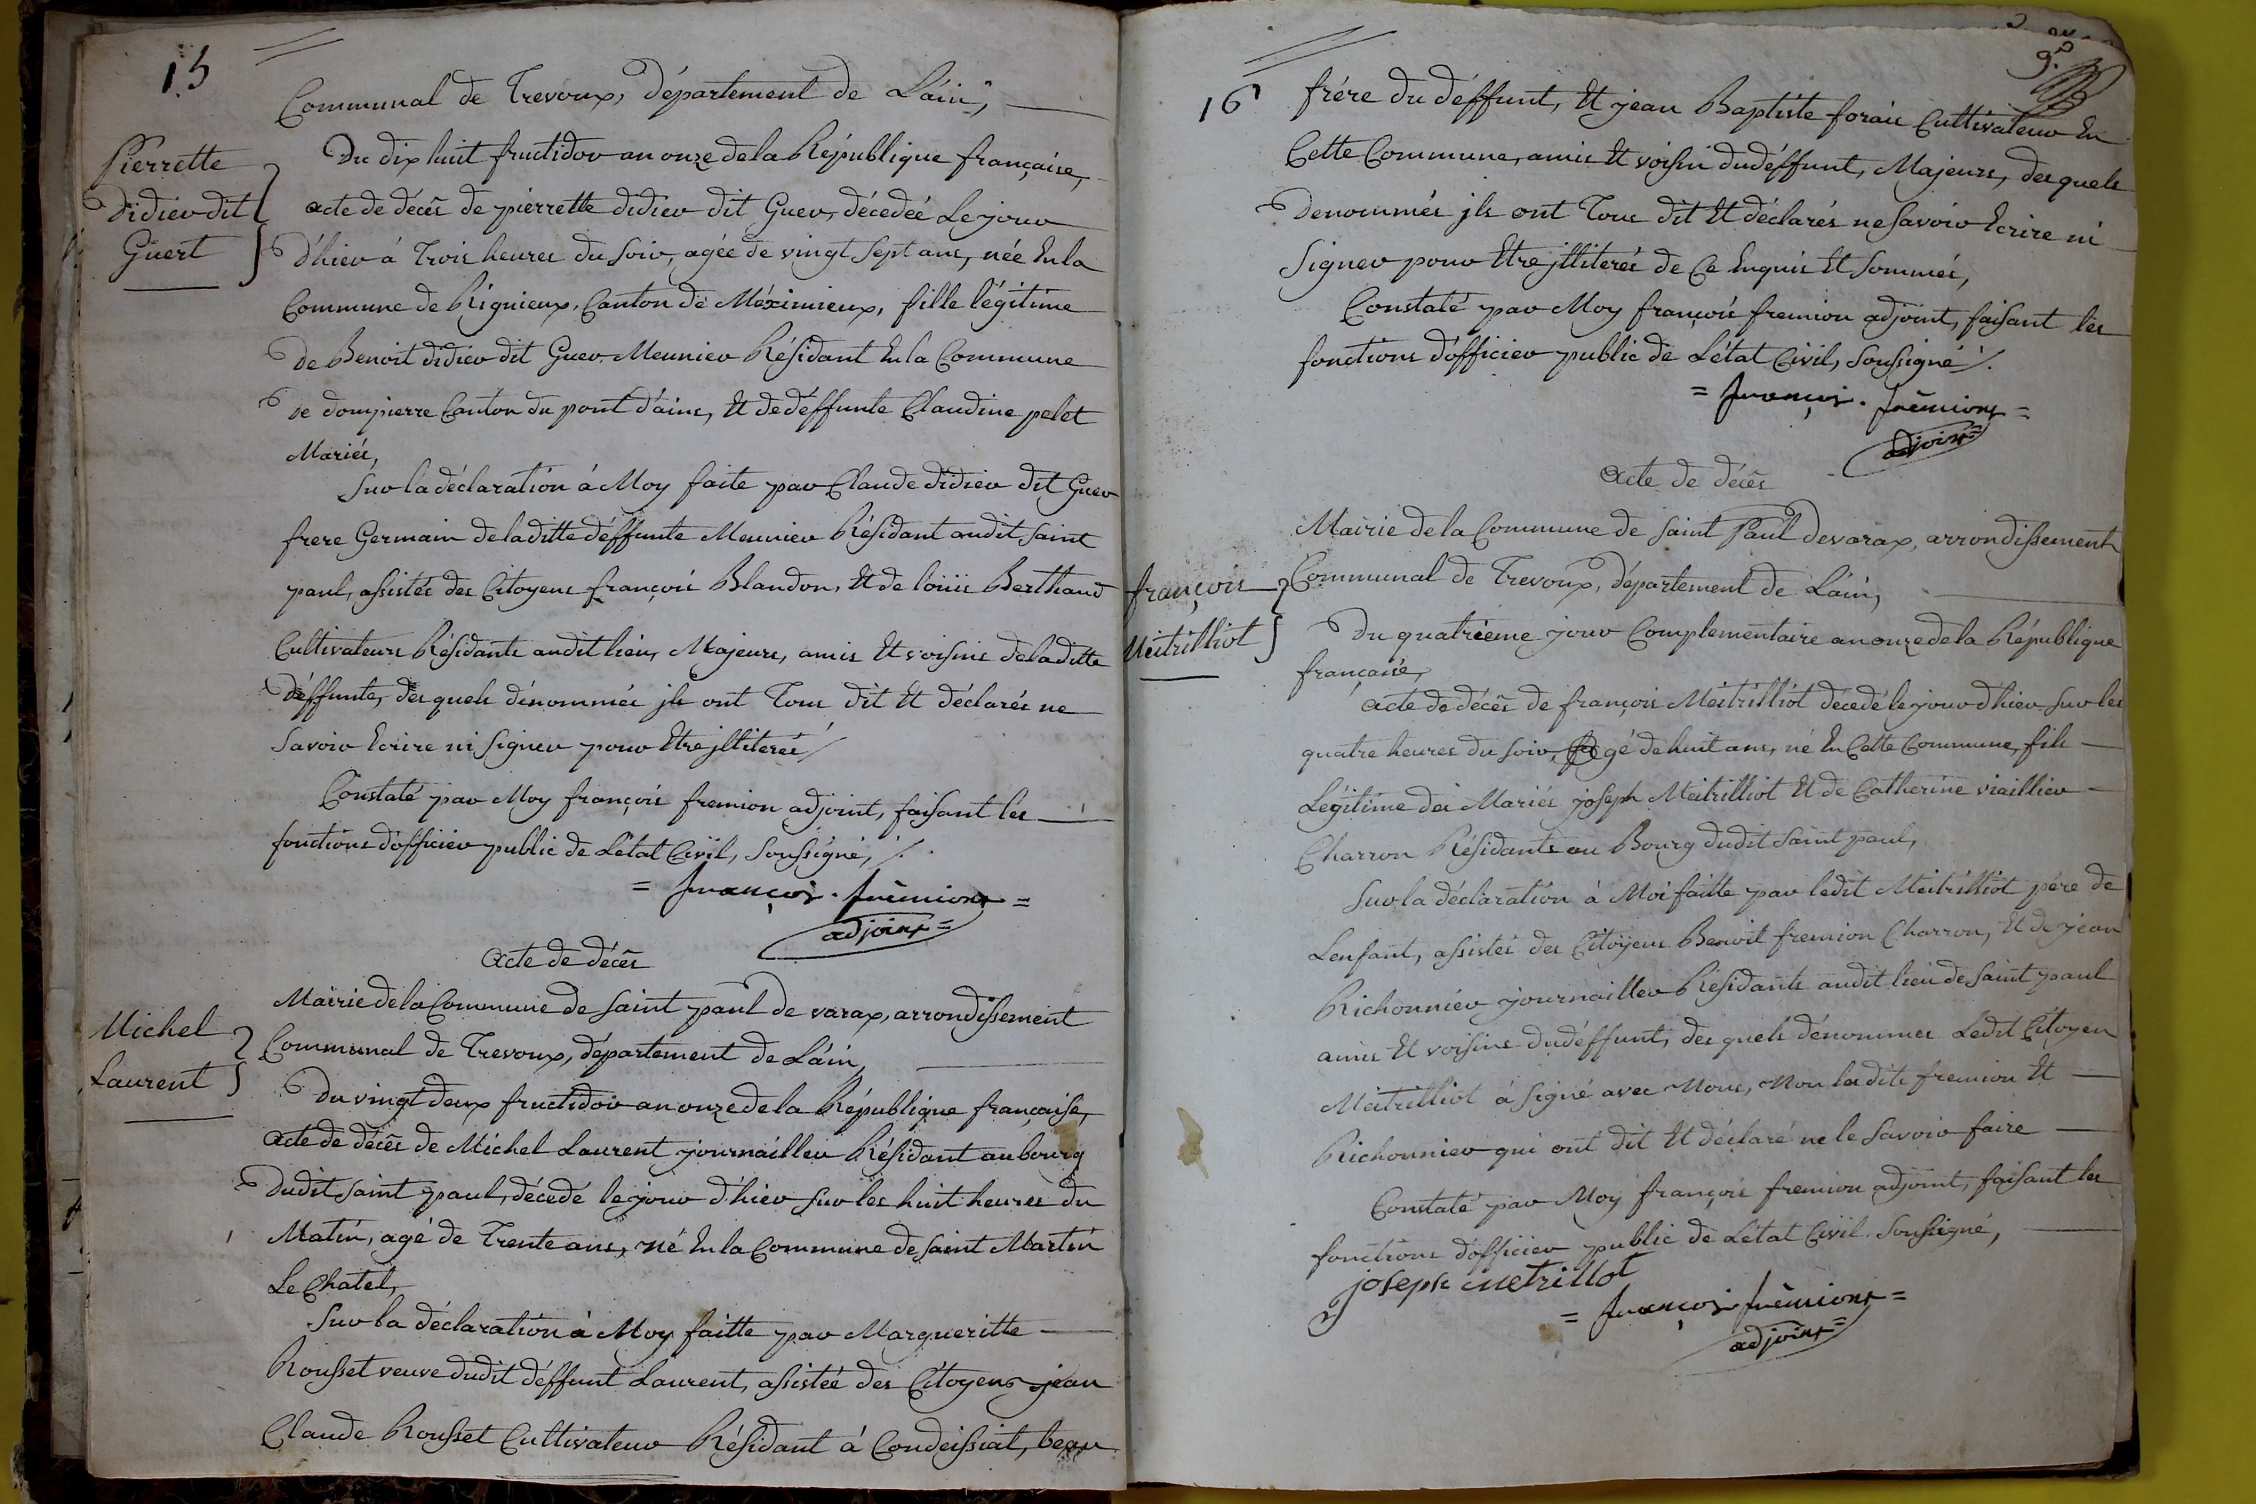 15
Communal de Trevoux, Département de Láin,
Pierrette
Didier dit
Guert
Du dix huit fructidor an onze de la République française,
acte de décês de pierrette didier dit Guer, décedeé Le jour
d'hier á Trois heures du Soir, agée de vingt Sept ans, née En la
Commune de Rignieux, Canton de Méximieux, fille légitime
de Benoit didier dit Guer Meunier Résidant En la Commune
de dompierre Canton du pont d'ains, Et de déffunte Claudine pelet
Mariés,
Sur la déclaration á Moy faite par Claude didier dit Guer
frere Germain de laditte déffunte Meunier Résidant audit Saint
paul, assistés des Citoyens françois Blandon, Et de loüis Berthaud
Cultivateurs Résidants audit lieu, Majeurs, amis Et voisins de laditte
déffunte, des quels dénommés jls ont Tous dit Et déclarés ne
Savoir Ecrire ni Signer pour Etre jlliterés /
Constaté par Moy françois fremion adjoint, faisant les
fonctions d'officier public de L'état Civil, Soussigné, /.
= françois . fremiont =
adjoint =
acte de décês
Michel
Laurent
Mairie de la Commune de Saint paul de varax, arrondissement
Communal de Trevoux, département de Láin,
Du vingt deux fructidor an onze de la République française,
acte de décês de Michel Laurent journaillier Résidant au bourg
dudit Saint paul, décedé le jour d'hier Sur les huit heures du
Matin, agé de Trente ans, né En la Commune de Saint Martin
Le Chatel,
Sur la déclaration á Moy faitte par Margueritte
Rousset veuve dudit déffunt Laurent, assisteé des Citoyens jean
Claude Rousset Cultivateur Résidant á Condeissiat, beau
16
9.
frére du déffunt, Et jean Baptiste forais Cultivateur En
Cette Commune, amis Et voisin du déffunt, Majeurs, des quels
Denommés jls ont Tous dit Et déclarés ne Savoir Ecrire ni
Signer pour Etre jlliterés de Ce Enquis Et Sommés,
Constaté par Moy françois fremion adjoint, faisant les
fonctions d'officier public de L'état Civil, Soussigné /.
= françois . fremiont =
adjoint =
acte de décês
françois
Meitrilliot
Mairie de la Commune de Saint Paul de varax, arrondissement
Communal de Trevoux, département de Láin,
Du quatriéme jour Complementaire an onze de la République
française,
acte de décês de françois Meitrilliot décedé le jour d'hier Sur les
quatre heures du Soir, agé de huit ans, né En Cette Commune, fils
Légitime des Mariés joseph Meitrilliot Et de Catherine viaillier
Charron Résidants au Bourg dudit Saint paul,
Sur la déclaration á Moi faitte par ledit Meitrilliot pére de
Lenfant, assistés des Citoÿens Benoit fremion Charron, Et de jean
Richonnier journaillier Résidants audit lieu de Saint paul
amis Et voisins du déffunt, des quels dénommés Ledit Citoyen
Meitrilliot á Signé avec Nous, Non lesdits fremion Et
Richonnier qui ont dit Et déclaré ne le Savoir faire
Constaté par Moy françois fremion adjoint, faisant les
fonctions d'officier public de L'état Civil. Soussigné,
joseph metrillot
= françois fremiont =
adjoint =